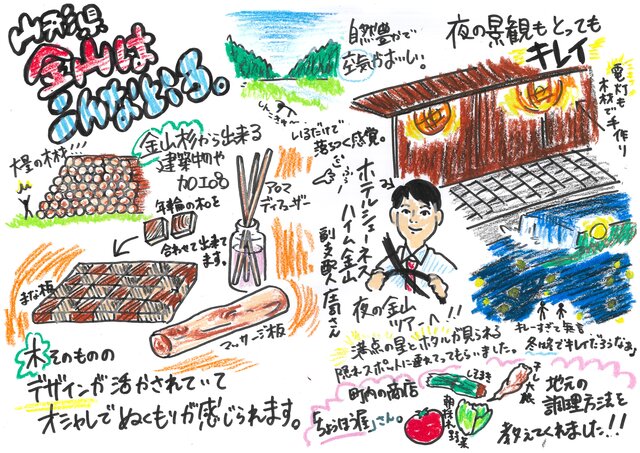 山形県
金山は
こんなところ。
大量の木材!!!
金山杉から出来る
建築物や
加工品
年輪の木を
合わせて出来て
ます。
まな板
アロマ
ディフューザー
マッサージ板
木そのものの
デザインが活かされていて
オシャレでぬくもりが感じられます。
自然豊かで
空気がおいしい。
いるだけで
落ちつく感覚。
夜の景観もとっても
キレイ
電灯も
木材で手作り
ホテルシェーネス
ハイム金山
副支配人 庄司さん
夜の金山
ツアーへ!!
満点の星とホタルが見られる
隠れスポットに連れてってもらいました。
キレーすぎて無言
冬は冬でキレイだろうなぁ
町内の商店
「ちょうほう屋」さん。
朝採れ野菜
地元の
調理方法を
教えてくれました!!